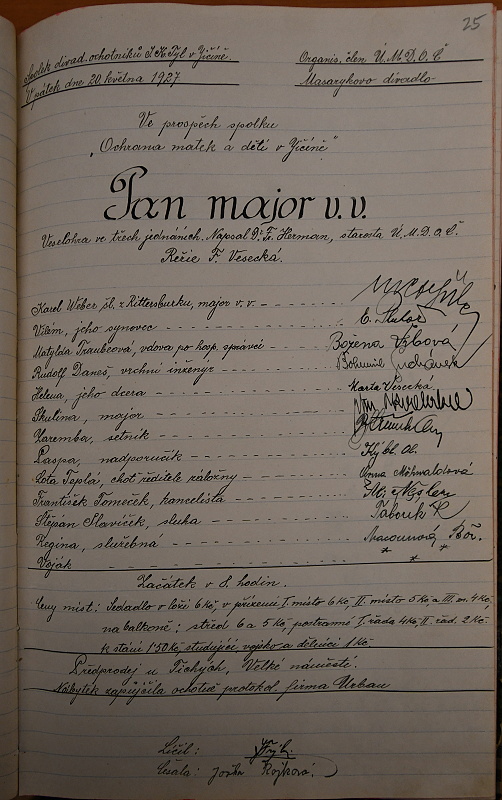 25
Spolek divad. ochotníků J. K. Tyl v Jičíně. Organis. člen Ú. M. D. O. Č.
V pátek dne 20. května 1927 Masarykovo divadlo
Ve prospěch spolku
„Ochrana matek a dětí v Jičíně"
Pan major v. v.
Veselohra ve třech jednáních. Napsal Dr. Fr. Herman, starosta Ú. M. D. O. Č.
Režie F. Vesecká.
Karel Weber šl. z Rittersburku, major v. v.
Vilém, jeho synovec
Matylda Traubeová, vdova po hosp. správci Božena
Rudolf Daneš, vrchní inženýr Bohumil
Helena, jeho dcera Marta Vesecká
Skulina, major
Zaremba, setník
Paspa, nadporučík
Lota Teplá, choť ředitele záložny Anna Möhwaldová
František Tomeček, kancelista
Štěpán Slavíček, sluha
Regina, služebná
Voják * * *
Začátek v 8. hodin.
Ceny míst: Sedadlo v loži 6 Kč, v přízemí I. místo 6 Kč, II. místo 5 Kč, a III. m. 4 Kč,
na balkoně: střed 6 a 5 Kč, postranné I. řada 4 Kč, II. řad. 2 Kč
k stání 1·50 Kč, studující vojsko a dělníci 1 Kč.
Předprodej u Tichých, Velké náměstí.
Nábytek zapůjčila ochotně protokol. firma Urban
Líčil:
Česala: